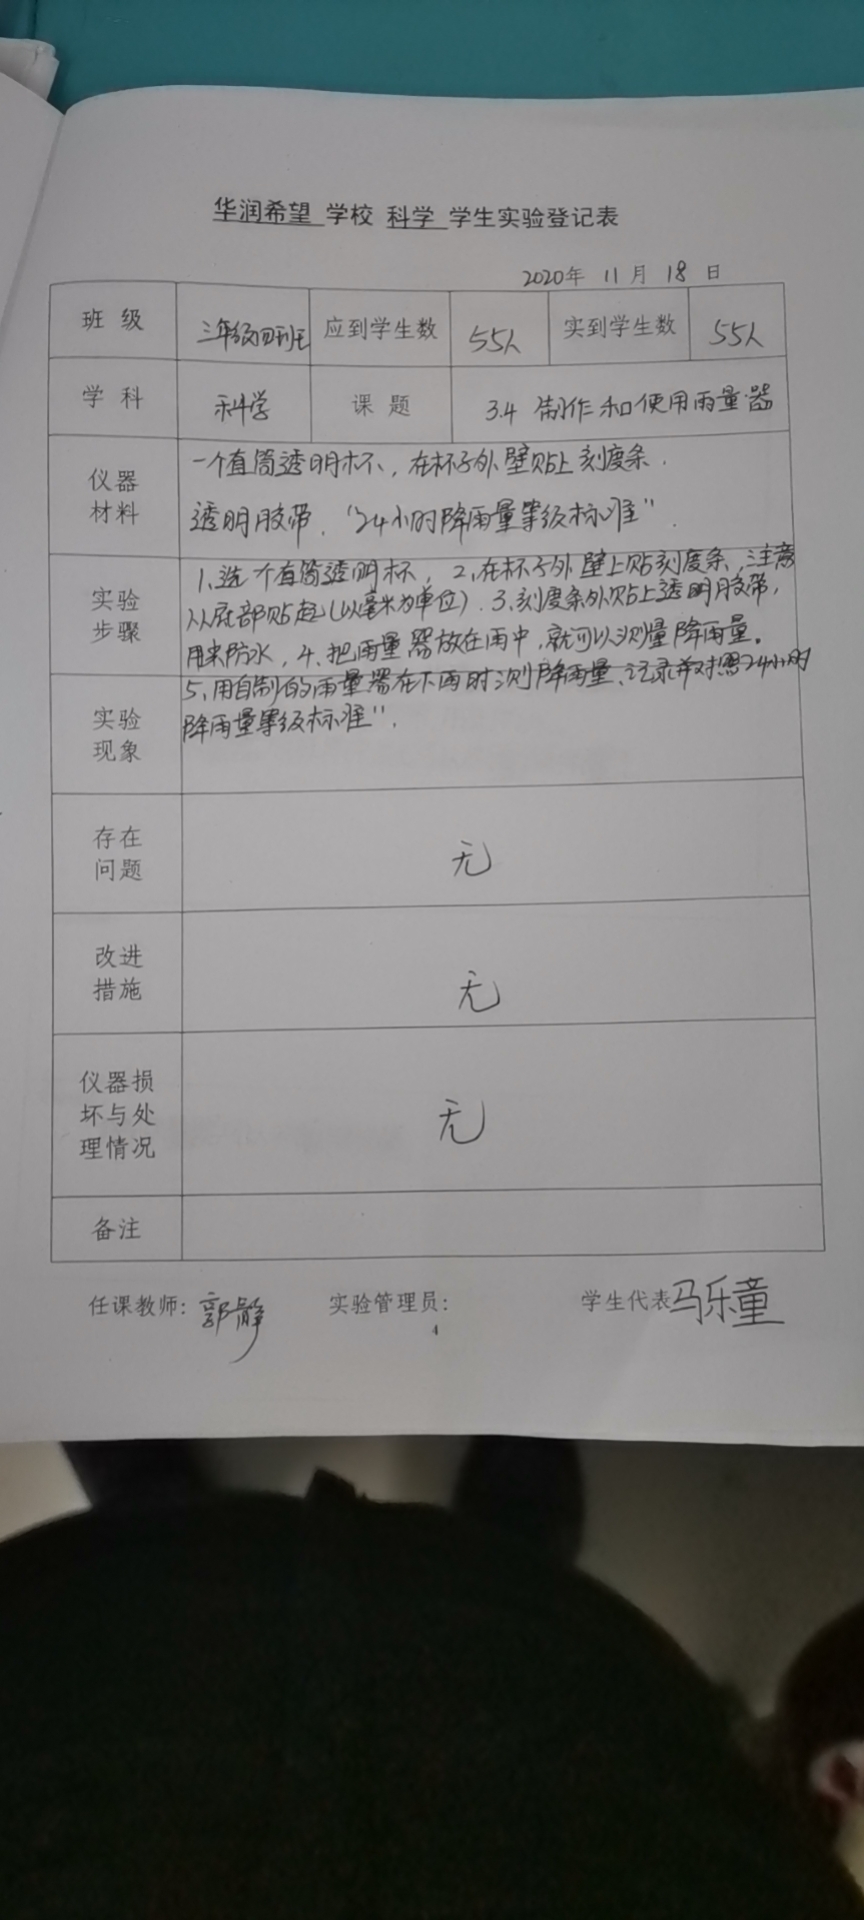 华润希望 学校 科学 学生实验登记表
2020年 11月 18日
班级 三年级四班 应到学生数 55人 实到学生数 55人
学科 科学 课题 3.4 制作和使用雨量器
仪器材料
一个直筒透明杯、在杯子外壁贴上刻度条.
透明胶带、"24小时降雨量等级标准".
实验步骤
1、选个直筒透明杯, 2、在杯子外壁上贴刻度条,注意
从底部贴起(以毫米为单位). 3、刻度条外贴上透明胶带,
用来防水, 4、把雨量器放在雨中,就可以测量降雨量。
实验现象
5、用自制的雨量器在下雨时测降雨量、记录并对照24小时
降雨量等级标准".
存在问题
无
改进措施
无
仪器损坏与处理情况
无
备注
任课教师: 郭静 实验管理员: 学生代表 马乐童
4